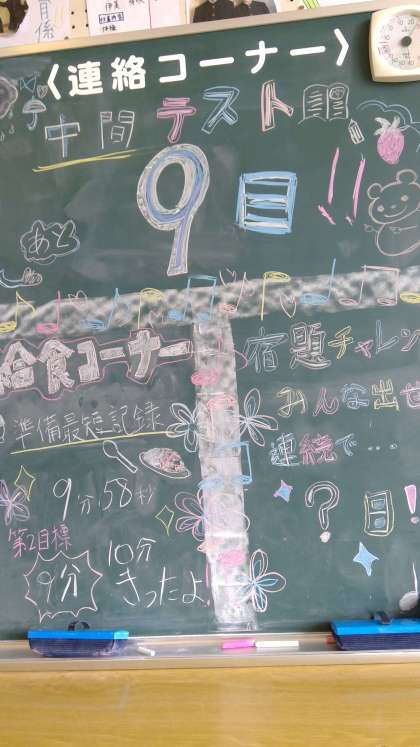 〈連絡コーナー〉
中間テスト
あと
9日!!
給食コーナー
準備最短記録
9分58秒
第2目標
9分
10分
きったよ!
宿題チャレン
みんな出せ
連続で…
?日!